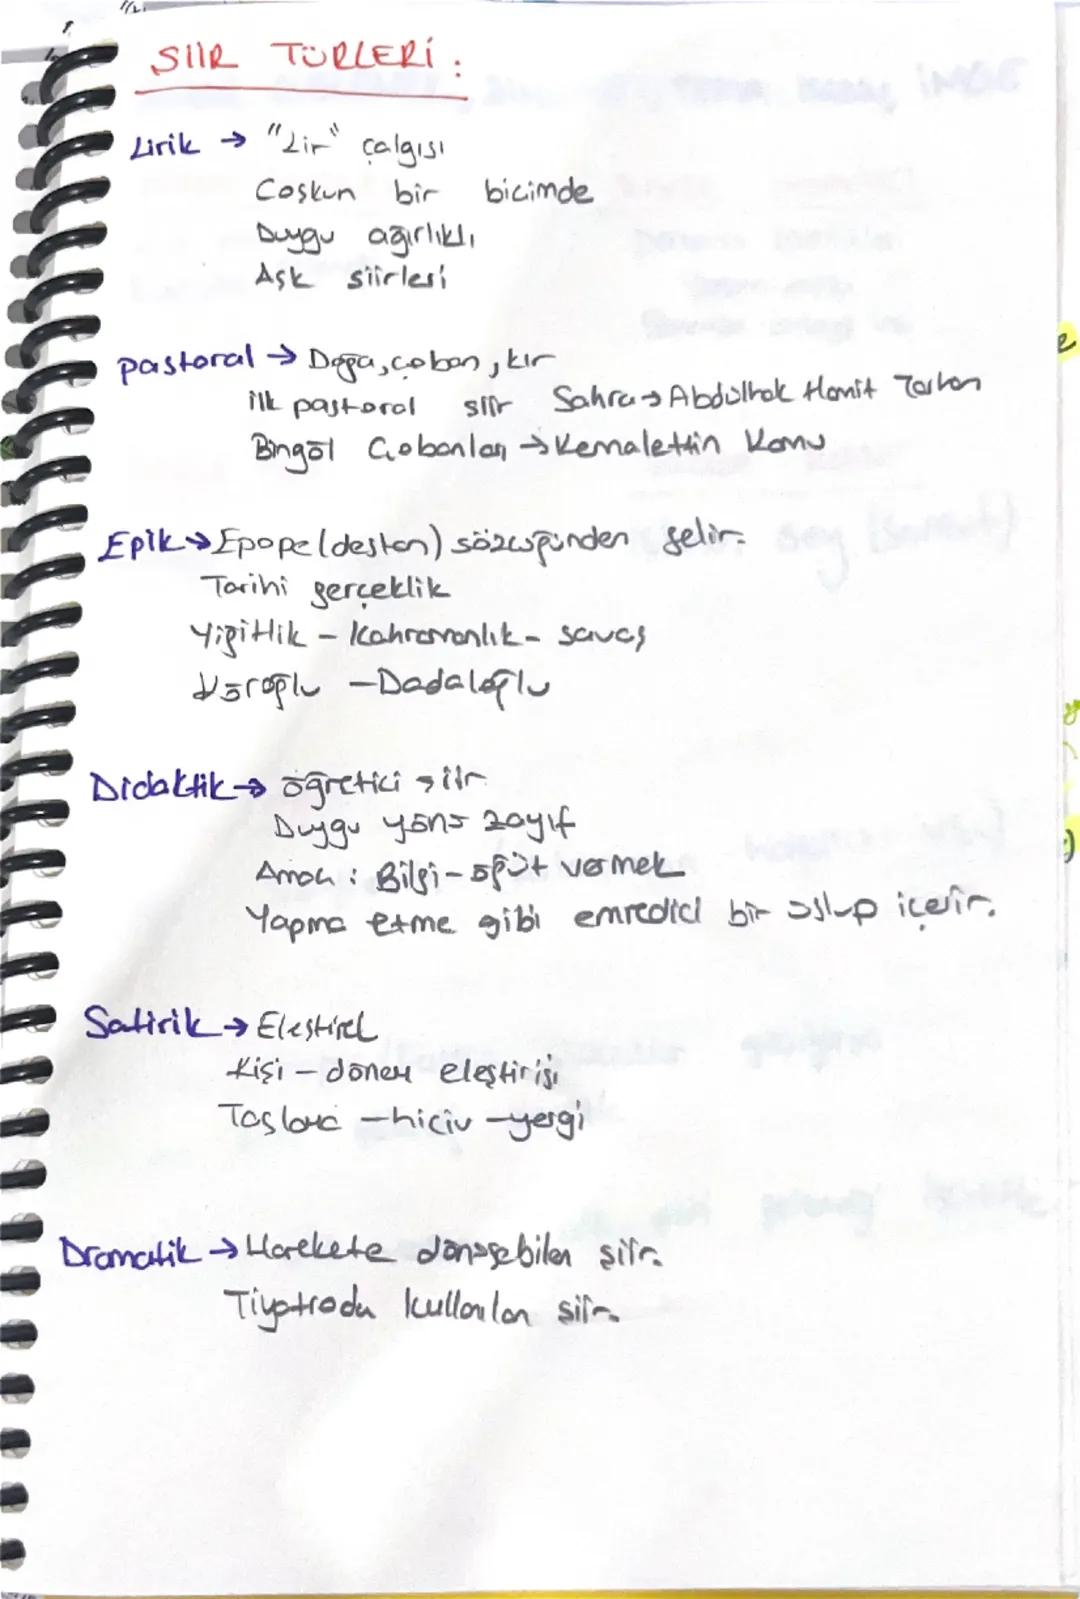 ŞİİR TÜRLERİ :
Lirik → "Lir" çalgısı
Coşkun bir biçimde
Duygu ağırlıklı
Aşk şiirleri
pastoral → Doğa, çoban, kır
ilk pastoral şiir Sahra → Abdülhak Hamit Tarhan
Bingöl Çobanları → Kemalettin Kamu
Epik → Epope (destan) sözcüğünden gelir.
Tarihi gerçeklik
Yiğitlik - Kahramanlık - savaş
Köroğlu - Dadaloğlu
Didaktik → öğretici şiir
Duygu yönü zayıf
Amaç : Bilgi - öğüt vermek
Yapma etme gibi emredici bir üslup içerir.
Satirik → Eleştirel
Kişi - dönem eleştirisi
Taşlama - hiciv - yergi
Dramatik → Harekete dönüşebilen şiir.
Tiyatroda kullanılan şiir.